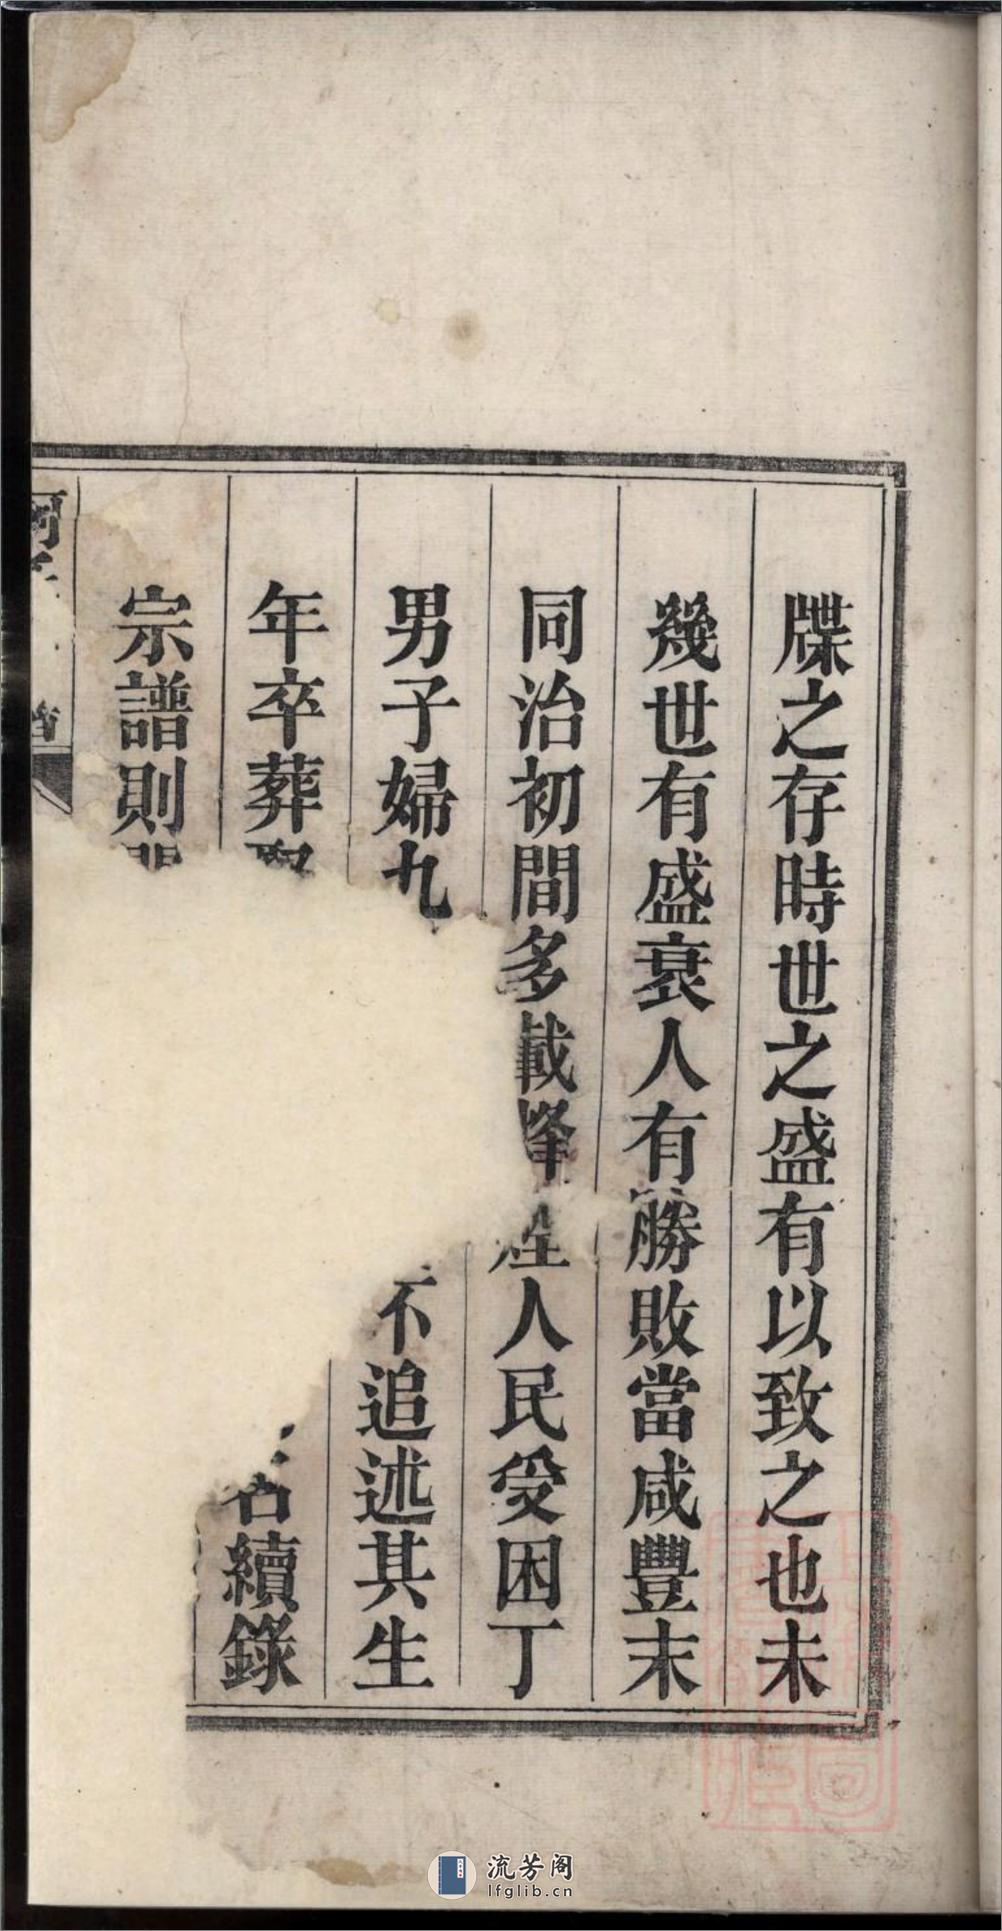 牒之存時世之盛有以致之也未
幾世有盛衰人有勝敗當咸豐末
同治初間多載烽煙人民受困丁
男子婦九
不追述其生
年卒葬
名續錄
宗譜則
流芳阁
lfglib.cn